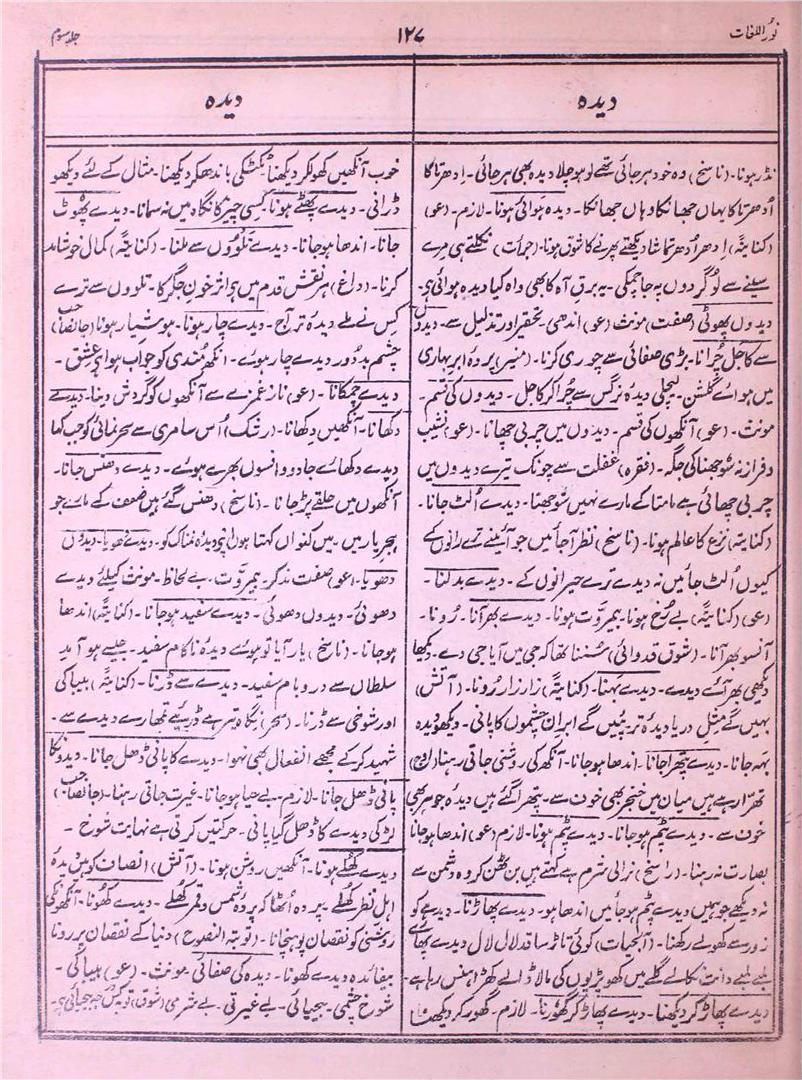 نورُ اللغات
۱۲۷
جلد سوم
دیدہ
دیدہ
نڈر ہونا۔ (ناسخ) وہ خود ہر جائی تھے لو ہو چلا دیدہ بھی ہر جائی۔ اِدھر تاکا
اُدھر تاکا یہاں جھانکا وہاں جھانکا۔ دیدہ ہوائی ہونا۔ لازم۔ (عو)
(کنایتہً) اِدھر اُدھر تماشا دیکھتے پھرنے کا شوق ہونا۔ (جرأت) نکلتے ہی مرے
سینے سے لو گردوں پہ جا چمکی۔ یہ برقِ آہ کا بھی واہ کیا دیدہ ہوائی ہے۔
دیدوں پھوٹی (صفت) مونث (عو) اندھی۔ تحقیر اور تذلیل سے۔ دیدوں
سے کاجل چُرانا۔ بڑی صفائی سے چوری کرنا۔ (منیر) پر وہ ابرِ بہاری
میں ہوائے گلشن۔ لیچلی دیدۂ نرگس سے چُرا کر کاجل۔ دیدوں کی قسم۔
مونث۔ (عو) آنکھوں کی قسم۔ دیدوں میں چربی چھانا۔ (عو) نشیب
و فراز نہ سُوجھنا کی جگہ۔ (فقرہ) غفلت سے چونک تیرے دیدوں میں
چربی چھائی ہے مامتا کے مارے نہیں سُوجھتا۔ دیدے اُلٹ جانا۔
(کنایتہً) نزع کا عالم ہونا۔ (ناسخ) نظر آجائیں جو آئینے ترے رانوں کے
کیوں اُلٹ جائیں نہ دیدے ترے حیرانوں کے۔ دیدے بدلنا۔
(عو) (کنایتہً) بے رُخ ہونا۔ بیمروّت ہونا۔ دیدے بھر آنا۔ رُونا۔
آنسو بھر آنا۔ (شوق قدوائی) سُننا تھا کہ جی میں آیا جی دے۔ دیکھا
دیکھی بھر آئے دیدے۔ دیدے بہنا۔ (کنایتہً) زار زار رُونا۔ (آتش)
بہیں گے مثلِ دریا دیدۂ تر بنیں گے ابر ان چشموں کا پانی۔ دیکھو دیدہ
بہہ جانا۔ دیدے پتھرا جانا۔ اندھا ہو جانا۔ آنکھ کی روشنی جاتی رہنا (اوج)
تھرّا رہے ہیں میان میں خنجر بھی خون سے۔ پتھرا گئے ہیں دیدۂ جوہر بھی
خون سے۔ دیدے پٹم ہو جانا۔ دیدے پٹم ہونا۔ لازم (عو) اندھا ہو جانا
بصارت نہ رہنا۔ (راسخ) نرالی شرم ہے کہتے ہیں بن ٹھن کر وہ دشمن سے
نہ دیکھے جو ہمیں دیدے پٹم ہو جائیں اندھا ہو۔ دیدے پھاڑنا۔ دیدے کو
زور سے کھولے رکھنا۔ (آبحیات) کوئی تاڑ سا قد لال لال دیدے پھاڑے
لمبے لمبے دانت نکالے گلے میں کھوپڑیوں کی مالا ڈالے کھڑا ہنس رہا ہے۔
دیدے پھاڑ کر دیکھنا۔ دیدے پھاڑ کر گھُورنا۔ لازم۔ گھور کر دیکھنا۔
خوب آنکھیں کھولکر دیکھنا ٹکٹکی باندھکر دیکھنا۔ مثال کے لئے دیکھو
ڈرانی۔ دیدے پھٹے ہونا۔ کسی چیز کا نگاہ میں نہ سمانا۔ دیدے پھُوٹ
جانا۔ اندھا ہو جانا۔ دیدے تلووں سے ملنا۔ (کنایتہً) کمال خوشامد
کرنا۔ (داغ) ہر نقشِ قدم میں ہے اثر خونِ جگر کا۔ تلووں سے ترے
کِس نے ملے دیدۂ تر آج۔ دیدے چار ہونا۔ ہوشیار ہونا (جانصاحب)
چشم بد دُور دیدے چار ہوئے۔ آنکھ مُندی کو خواب ہوا ہے عشق۔
دیدے چمکانا۔ (عو) ناز غمزے سے آنکھوں کو گردش دینا۔ دیدے
دکھانا۔ آنکھیں دکھانا۔ (رشک) اُس سامری سے سحر نمائی کو جب کہا
دیدے دکھائے جادو و انسوں بھرے ہوئے۔ دیدے دھنس جانا۔
آنکھوں میں حلقے پڑ جانا۔ (ناسخ) دھنس گئے ہیں ضعف کے مارے جو
ہجرِ یار میں۔ میں کنواں کہتا ہوں اپنی دیدۂ نمناک کو۔ دیدے دھویا۔ دیدوں
دھویا۔ (عو) صفت مذکر۔ بیمروّت۔ بے لحاظ۔ مونث کیلئے دیدے
دھوئی۔ دیدوں دھوئی۔ دیدے سفید ہو جانا۔ (کنایتہً) اندھا
ہو جانا۔ (ناسخ) یار آیا تو ہوئے دیدۂ ناکام سفید۔ جیسے ہو آمدِ
سلطاں سے در و بام سفید۔ دیدے سے ڈرنا۔ (کنایتہً) بیباکی
اور شوخی سے ڈرنا۔ (بحر) نگاہ قہر سے ڈریئے تمھارے دیدے سے۔
شہید کر کے مجھے انفعال بھی نہوا۔ دیدے کا پانی ڈھل جانا۔ دیدوں کا
پانی ڈھل جانا۔ لازم۔ بے حیا ہو جانا۔ غیرت جاتی رہنا۔ (جانصاحب)
لڑکی دیدے کا ڈھل گیا پانی۔ حرکتیں کرتی ہے نہایت شوخ۔
دیدے کھُلے ہونا۔ آنکھیں روشن ہونا۔ (آتش) انصاف کو ہیں دیدۂ
اہلِ نظر کھُلے۔ پردہ اُٹھا کہ پردۂ شمس و قمر کھُلے۔ دیدے کھونا۔ آنکھوں کی
روشنی کو نقصان پہونچانا۔ (توبتہ النصوح) دنیا کے نقصان پر رونا
بیفائدہ دیدے کھونا۔ دیدہ کی صفائی۔ مونث۔ (عو) بیباکی۔
شوخ چشمی۔ بیحیائی۔ بے غیرتی۔ بے شرمی (شوق) توبہ کس جہ بیحیائی ہے۔